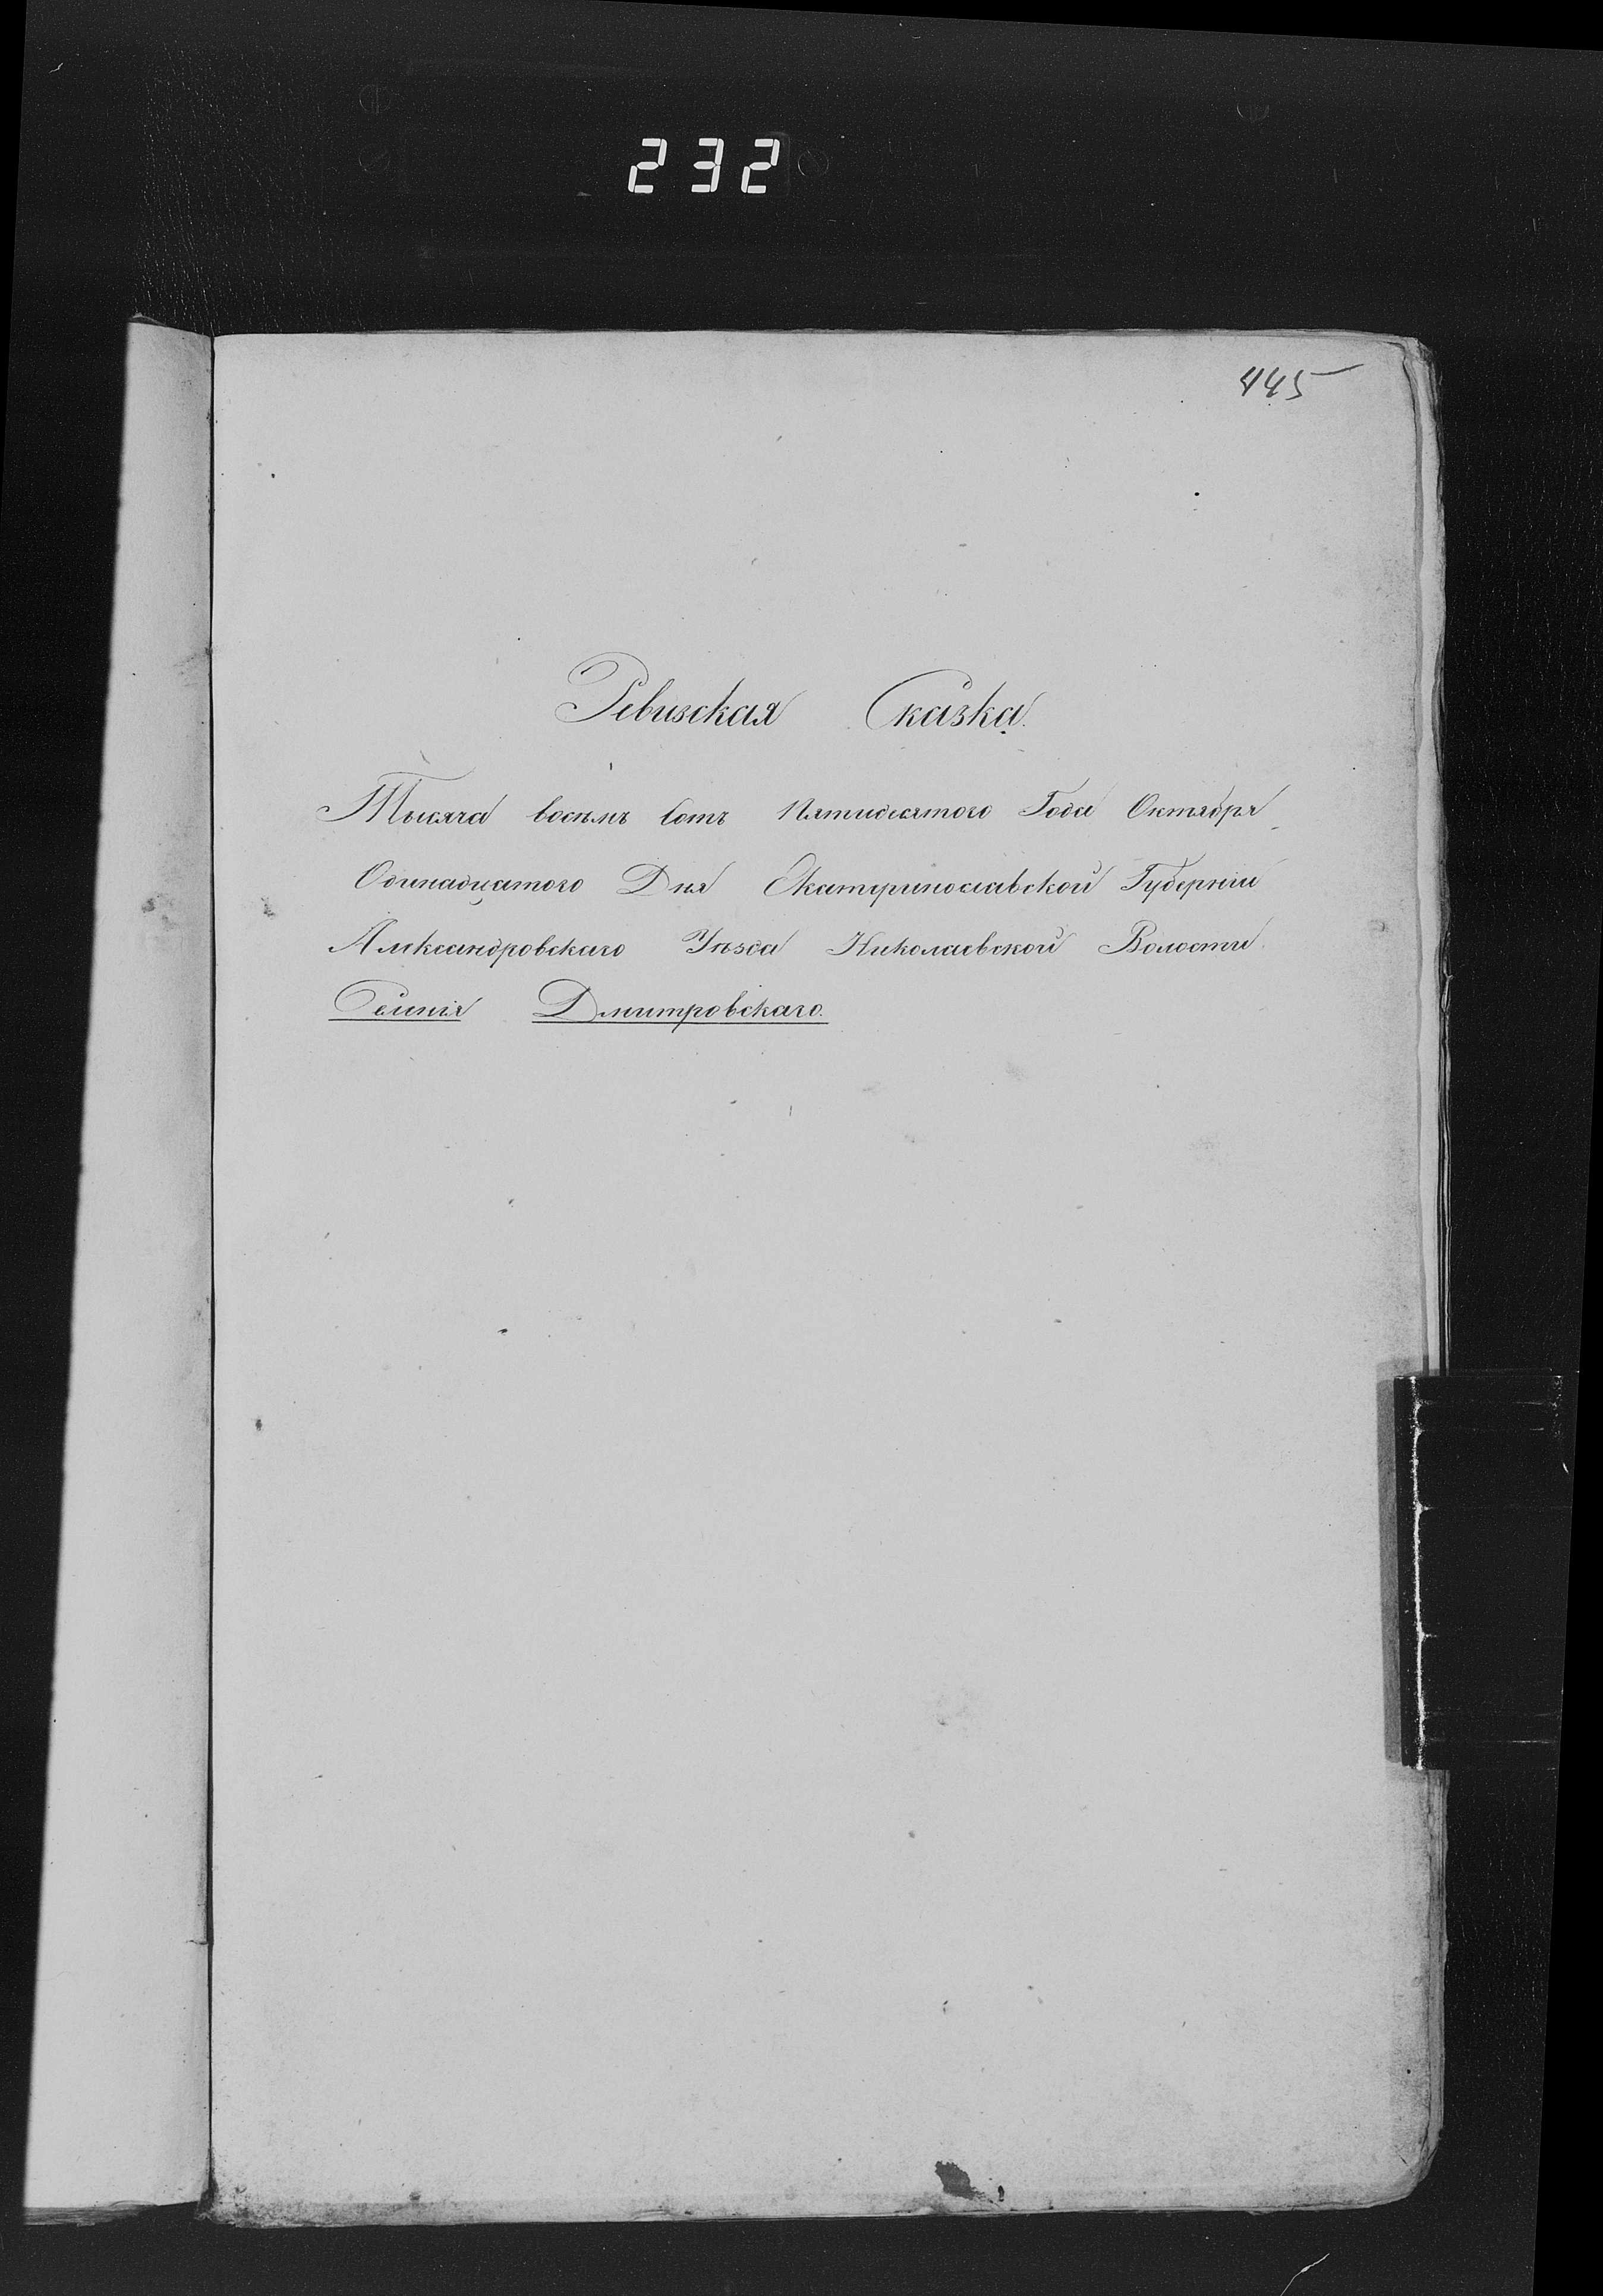 232
445
Ревизская Сказка.
Тысяча восемь сотъ Пятидесятого Года Октября
Одинадцатого Дня Екатеринославской Губерніи
Александровскаго Уѣзда Николаевской Волости
Селенія Дмитровскаго.